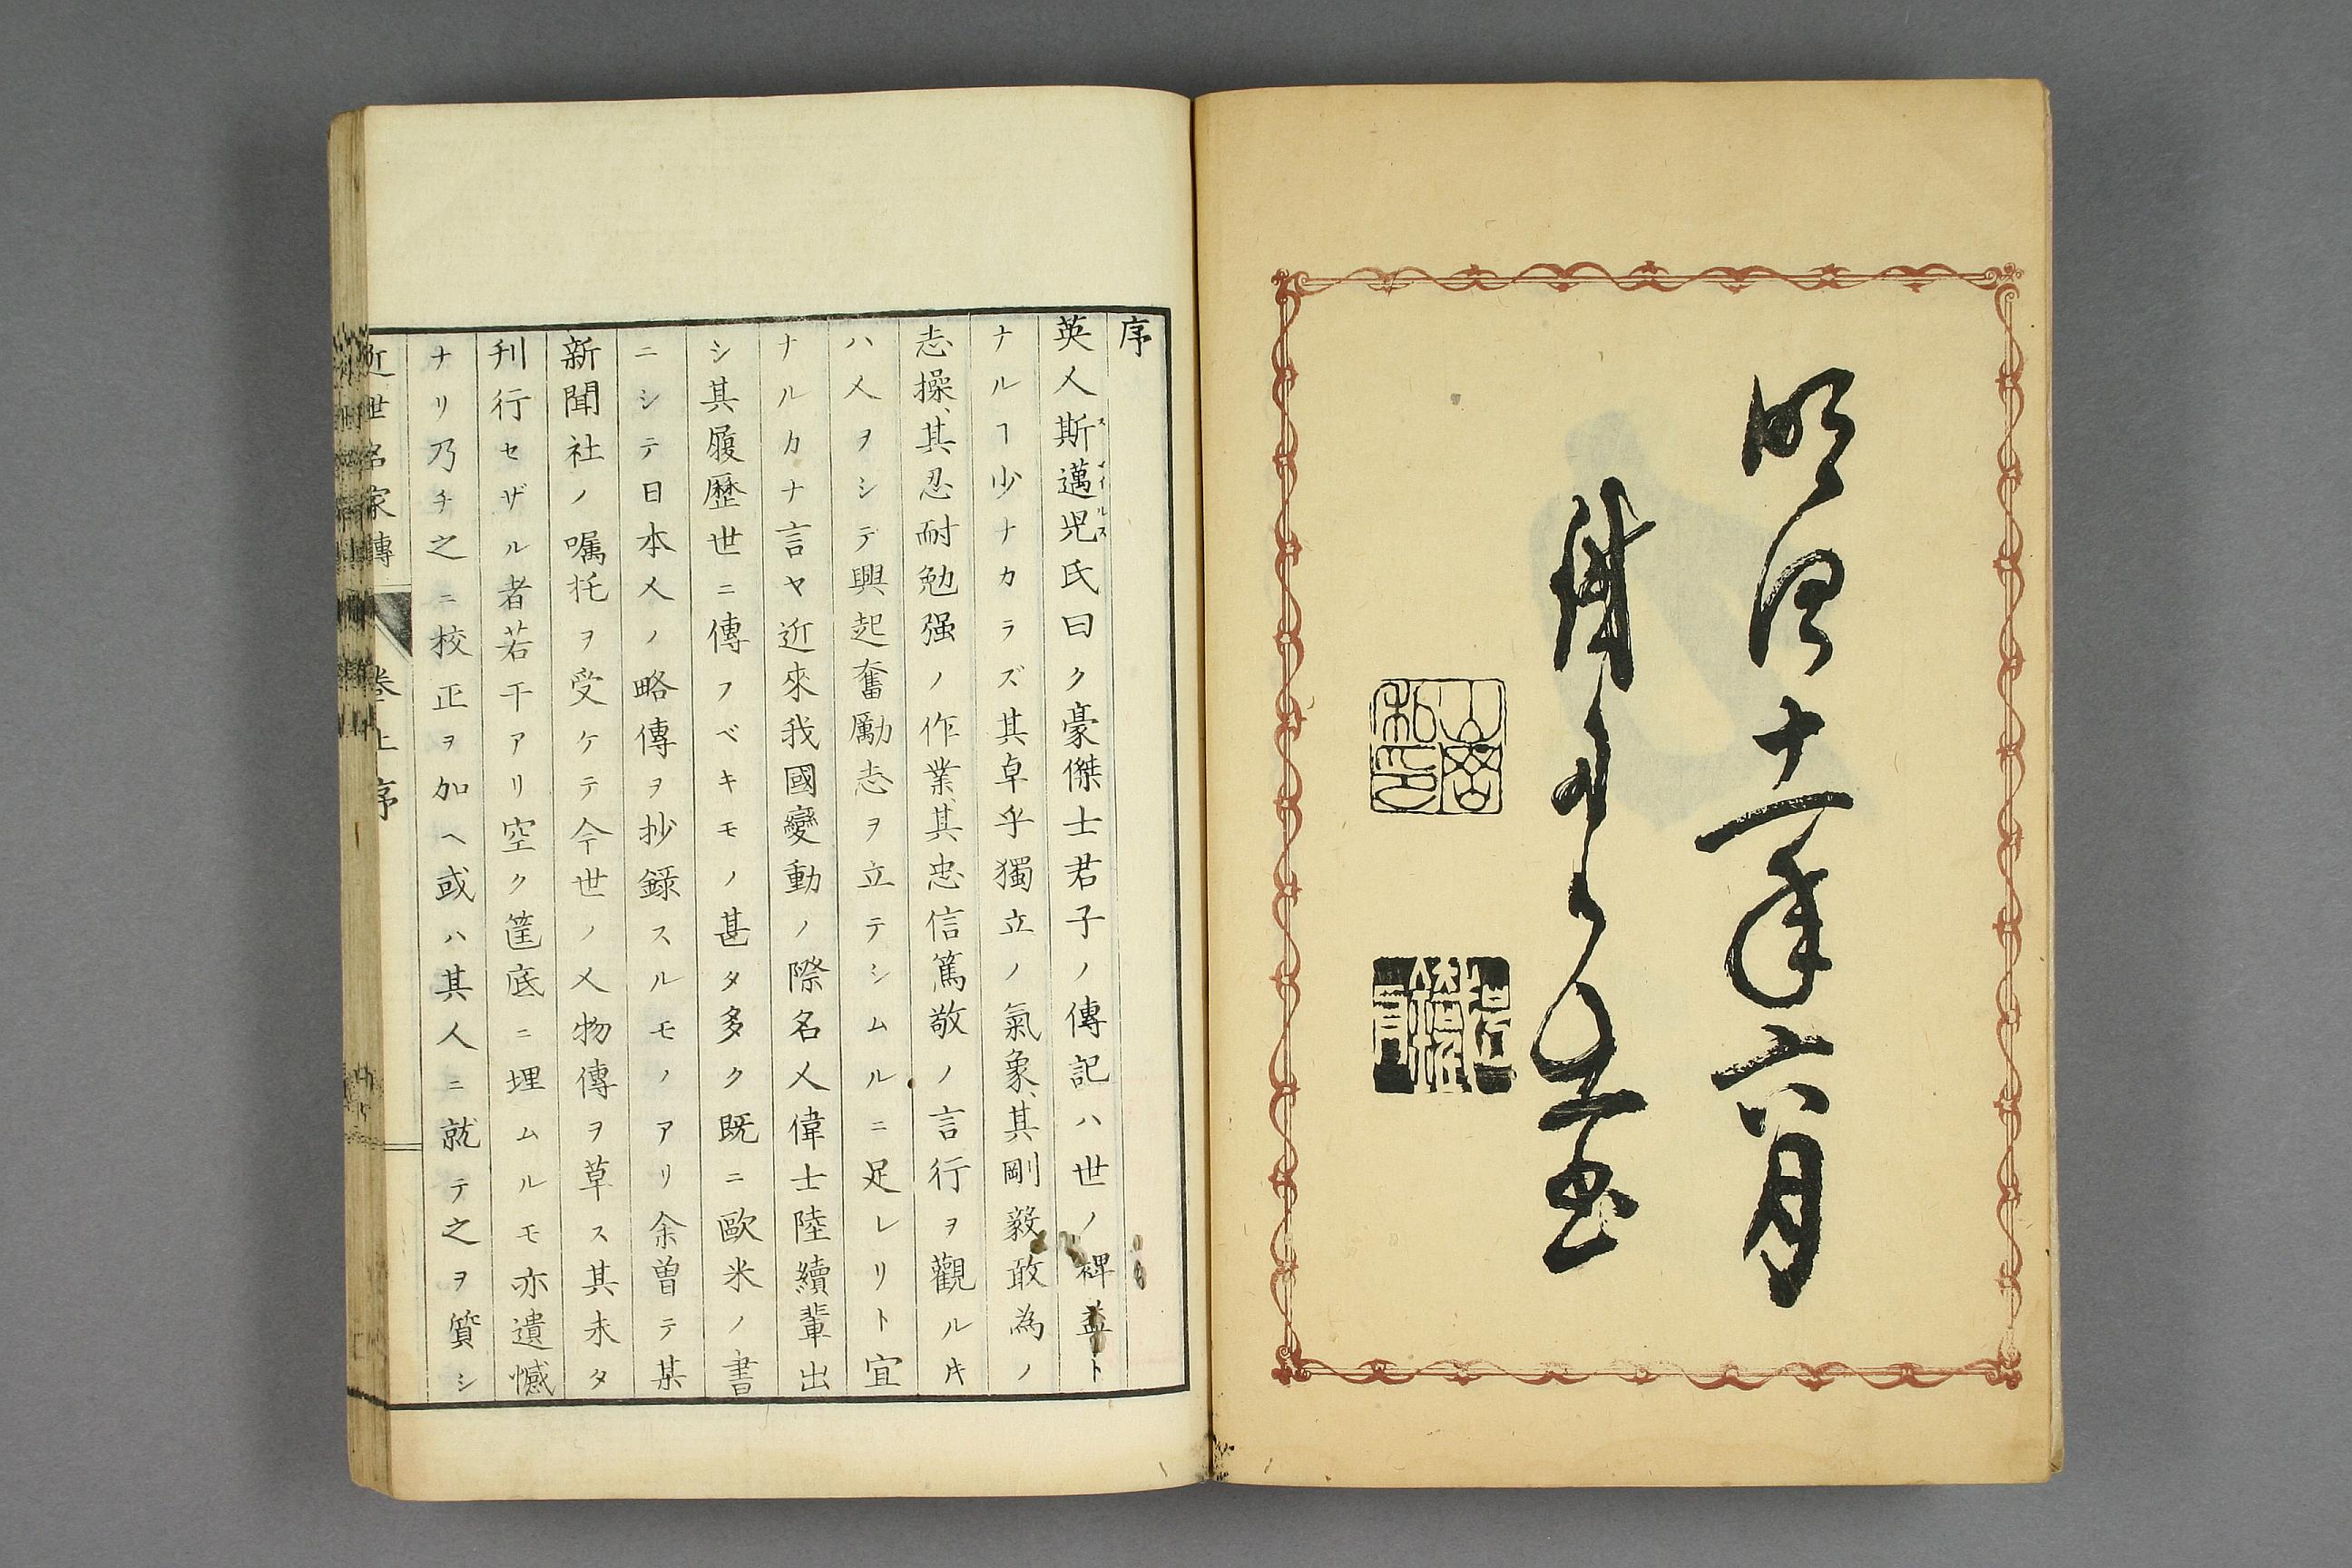 明治十一年六月
序
英人斯邁児氏曰ク豪傑士君子ノ傳記ハ世ノ裨益ト
スマイルス
ナルヿ少ナカラズ其卓乎獨立ノ氣象、其剛毅敢為ノ
志操、其忍耐勉强ノ作業、其忠信篤敬ノ言行ヲ觀ル𪜈
ハ人ヲシテ興起奮勵志ヲ立テシムルニ足レリト宜
ナルカナ言ヤ近來我國變動ノ際名人偉士陸續輩出
シ其履歴世ニ傳フベキモノ甚タ多ク既ニ歐米ノ書
ニシテ日本人ノ略傳ヲ抄錄スルモノアリ余曽テ某
新聞社ノ嘱托ヲ受ケテ今世ノ人物傳ヲ草ス其未タ
刊行セザル者若干アリ空ク筐底ニ埋ムルモ亦遺憾
ナリ乃チ之ニ校正ヲ加ヘ或ハ其人ニ就テ之ヲ質シ
近世名家傳 卷上 序